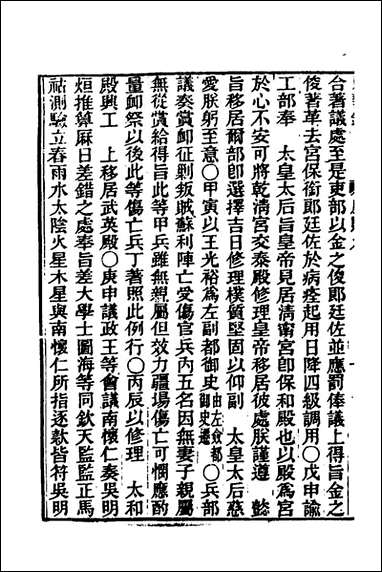 合著議處至是吏部以金之俊郎廷佐並應罰俸議上得旨金之
俊著革去宮保銜郎廷佐於病痊起用日降四級調用〇戊申諭
工部奉　太皇太后旨皇帝見居清甯宮卽保和殿也以殿爲宮
於心不安可將乾清宮交泰殿修理皇帝移居彼處朕謹遵　懿
旨移居爾部卽選擇吉日修理樸質堅固以仰副　太皇太后慈
愛朕躬至意〇甲寅以王光裕爲左副都御史由左僉都御史遷〇兵部
議奏賞卹征剿叛賊蘇利陣亡受傷官兵內五名因無妻子親屬
無從賞給得旨此等甲兵雖無親屬但效力疆場傷亡可憫應酌
量卹祭以後此等傷亡兵丁著照此例行〇丙辰以修理　太和
殿興工　上移居武英殿〇庚申議政王等會議南懷仁奏吳明
烜推算厤日差錯之處奉旨差大學士圖海等同欽天監監正馬
祜測驗立春雨水太陰火星木星與南懷仁所指逐欵皆符吳明